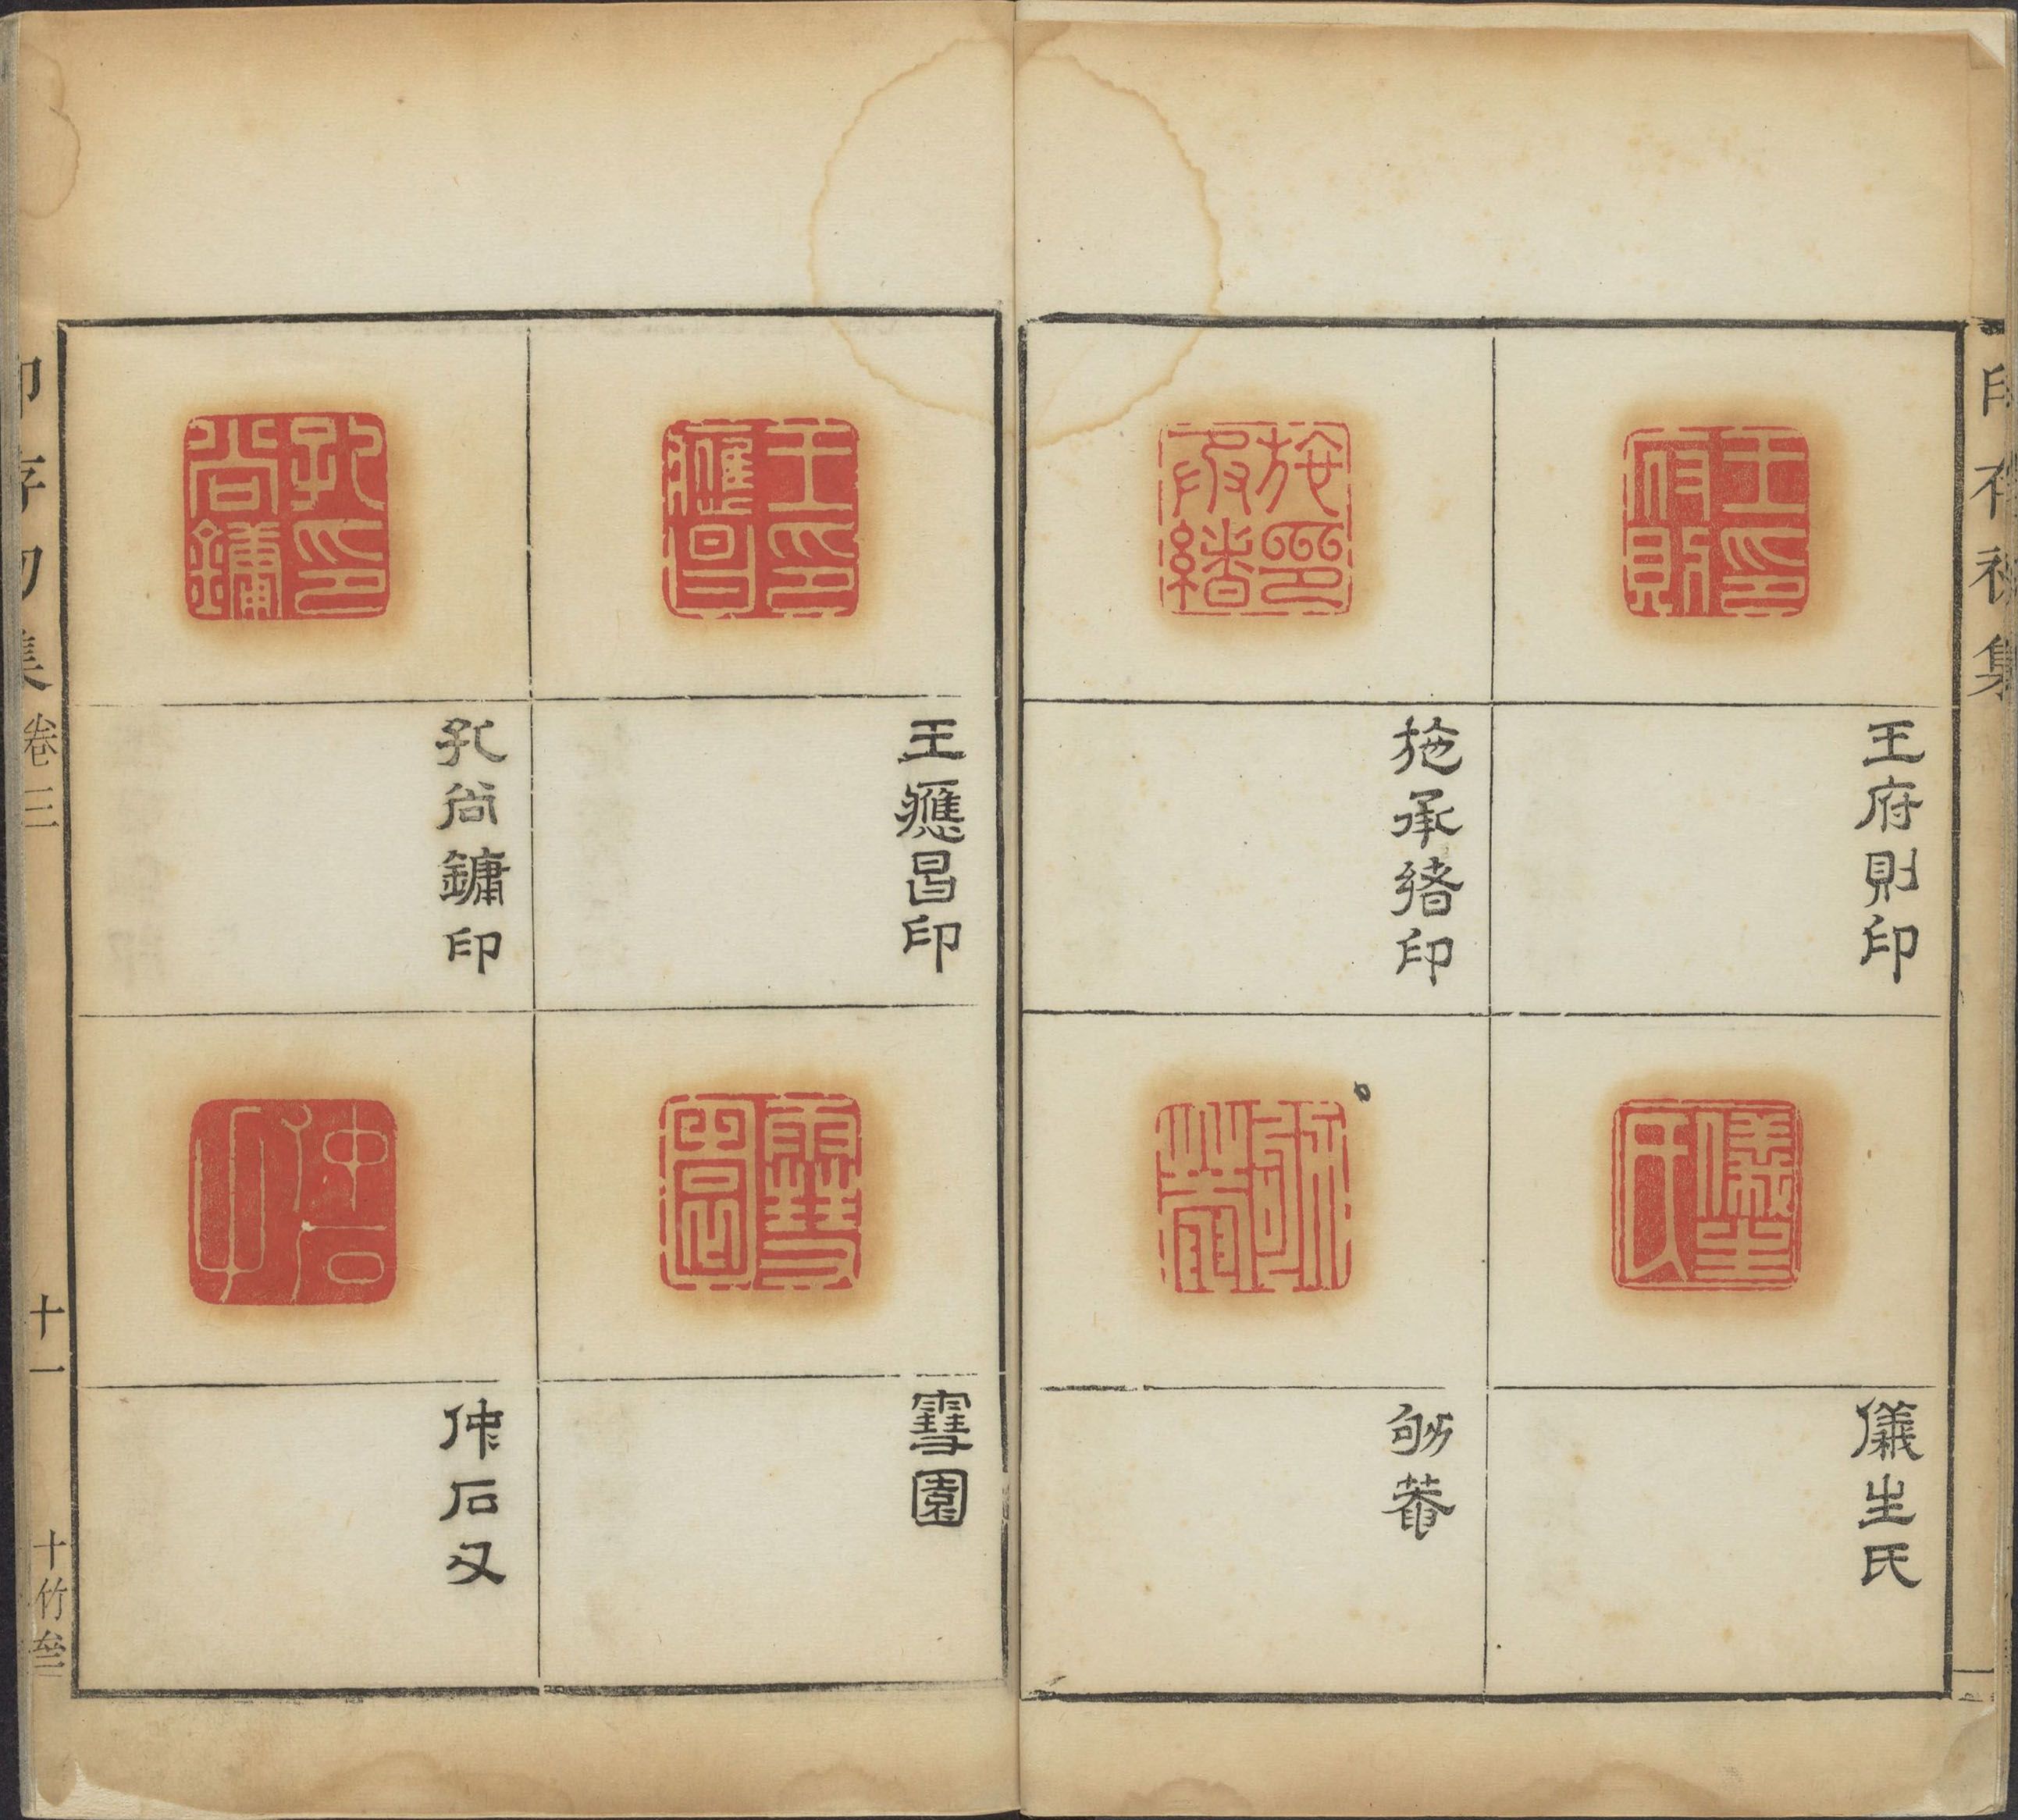 印存初集
王府則印
儀生氏
施承緒印
菴
王應昌印
䨮園
孔尚鏞印
仲石父
印存初集
卷三
十一
十竹齋